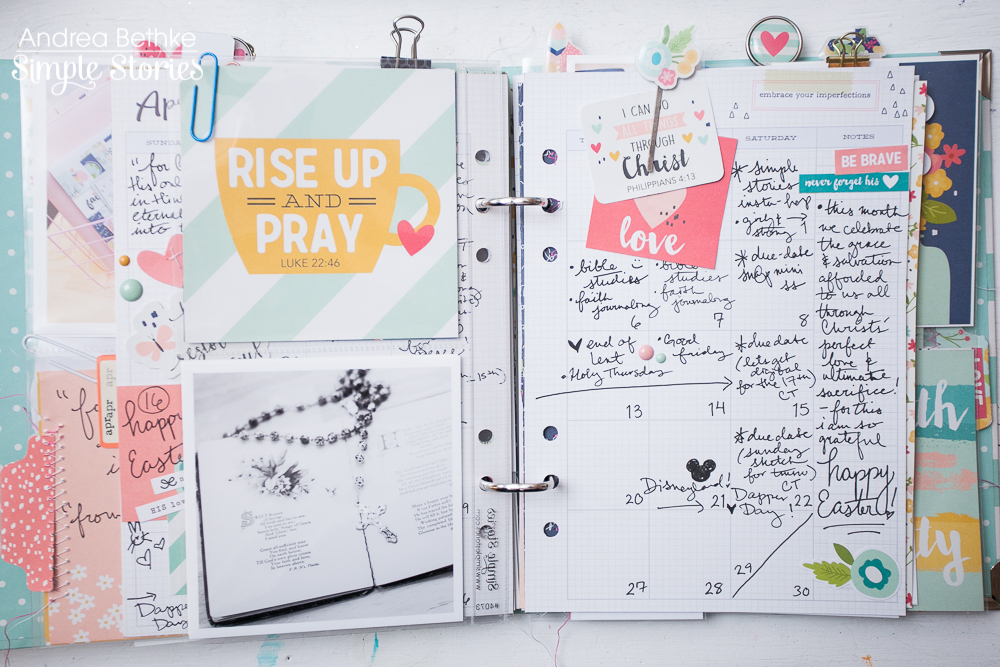 Andrea Bethke
Simple Stories
Ap
SUNDA
"for
His onl
in Him
eternal
into t
RISE UP
AND
PRAY
LUKE 22:46
apr apr apr
16
happy
Easter
HIS lo
"from
Dapper
Day
simple stories
#4073
I CAN DO
ALL THINGS
THROUGH
Christ
PHILIPPIANS 4:13
love
embrace your imperfections
SATURDAY
NOTES
BE BRAVE
never forget his
* simple
stories
insta-hop
• girls →
story 1
* due-date
• bible
studies
• faith
journaling
6
• bible
studies
faith
journaling
7
8
• end of
Lent
• Holy Thursday
• Good
Friday
* due date
(let's get
digital
for the 17th)
CT
13
14
15
* due date
(sunday
sketch
for
CT
Disneyland!
Dapper
Day!
20
21
22
27
28
29
30
• this month
we celebrate
the grace
& salvation
afforded
to us all
through
Christ's
perfect
love &
ultimate
sacrifice!
- for this
i am so
grateful
happy
Easter!